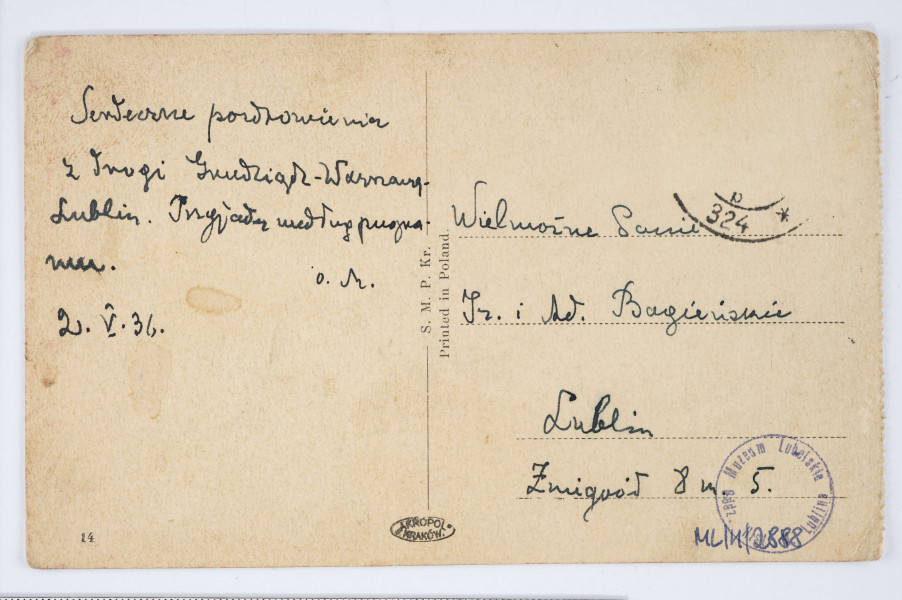 Serdeczne pozdrowienia
z drogi Grudziądz-Warszawa-
Lublin. Przyjadę według progra-
mu.
o. M.
2. V. 36.
S. M. P. Kr.
Printed in Poland.
Wielmożne Panie
Iz. i Ad. Bagieńskie
Lublin
Żmigród 8 m 5.
p
324 *
Muzeum Lubelskie
Lublinie
ML/H/2888
AKROPOL
KRAKÓW
14